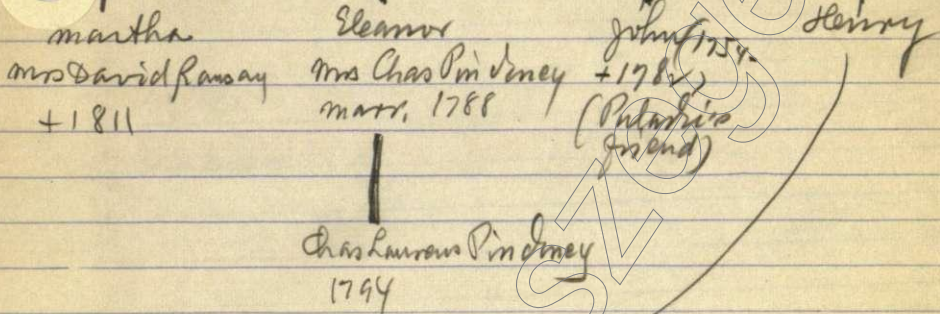 Martha
Mrs David Ramsay
+ 1811
Eleanor
Mrs Chas Pinckney
marr. 1788
John 1754
+ 1782
(Pulaski's
friend)
Henry
Chas Laurens Pinckney
1794